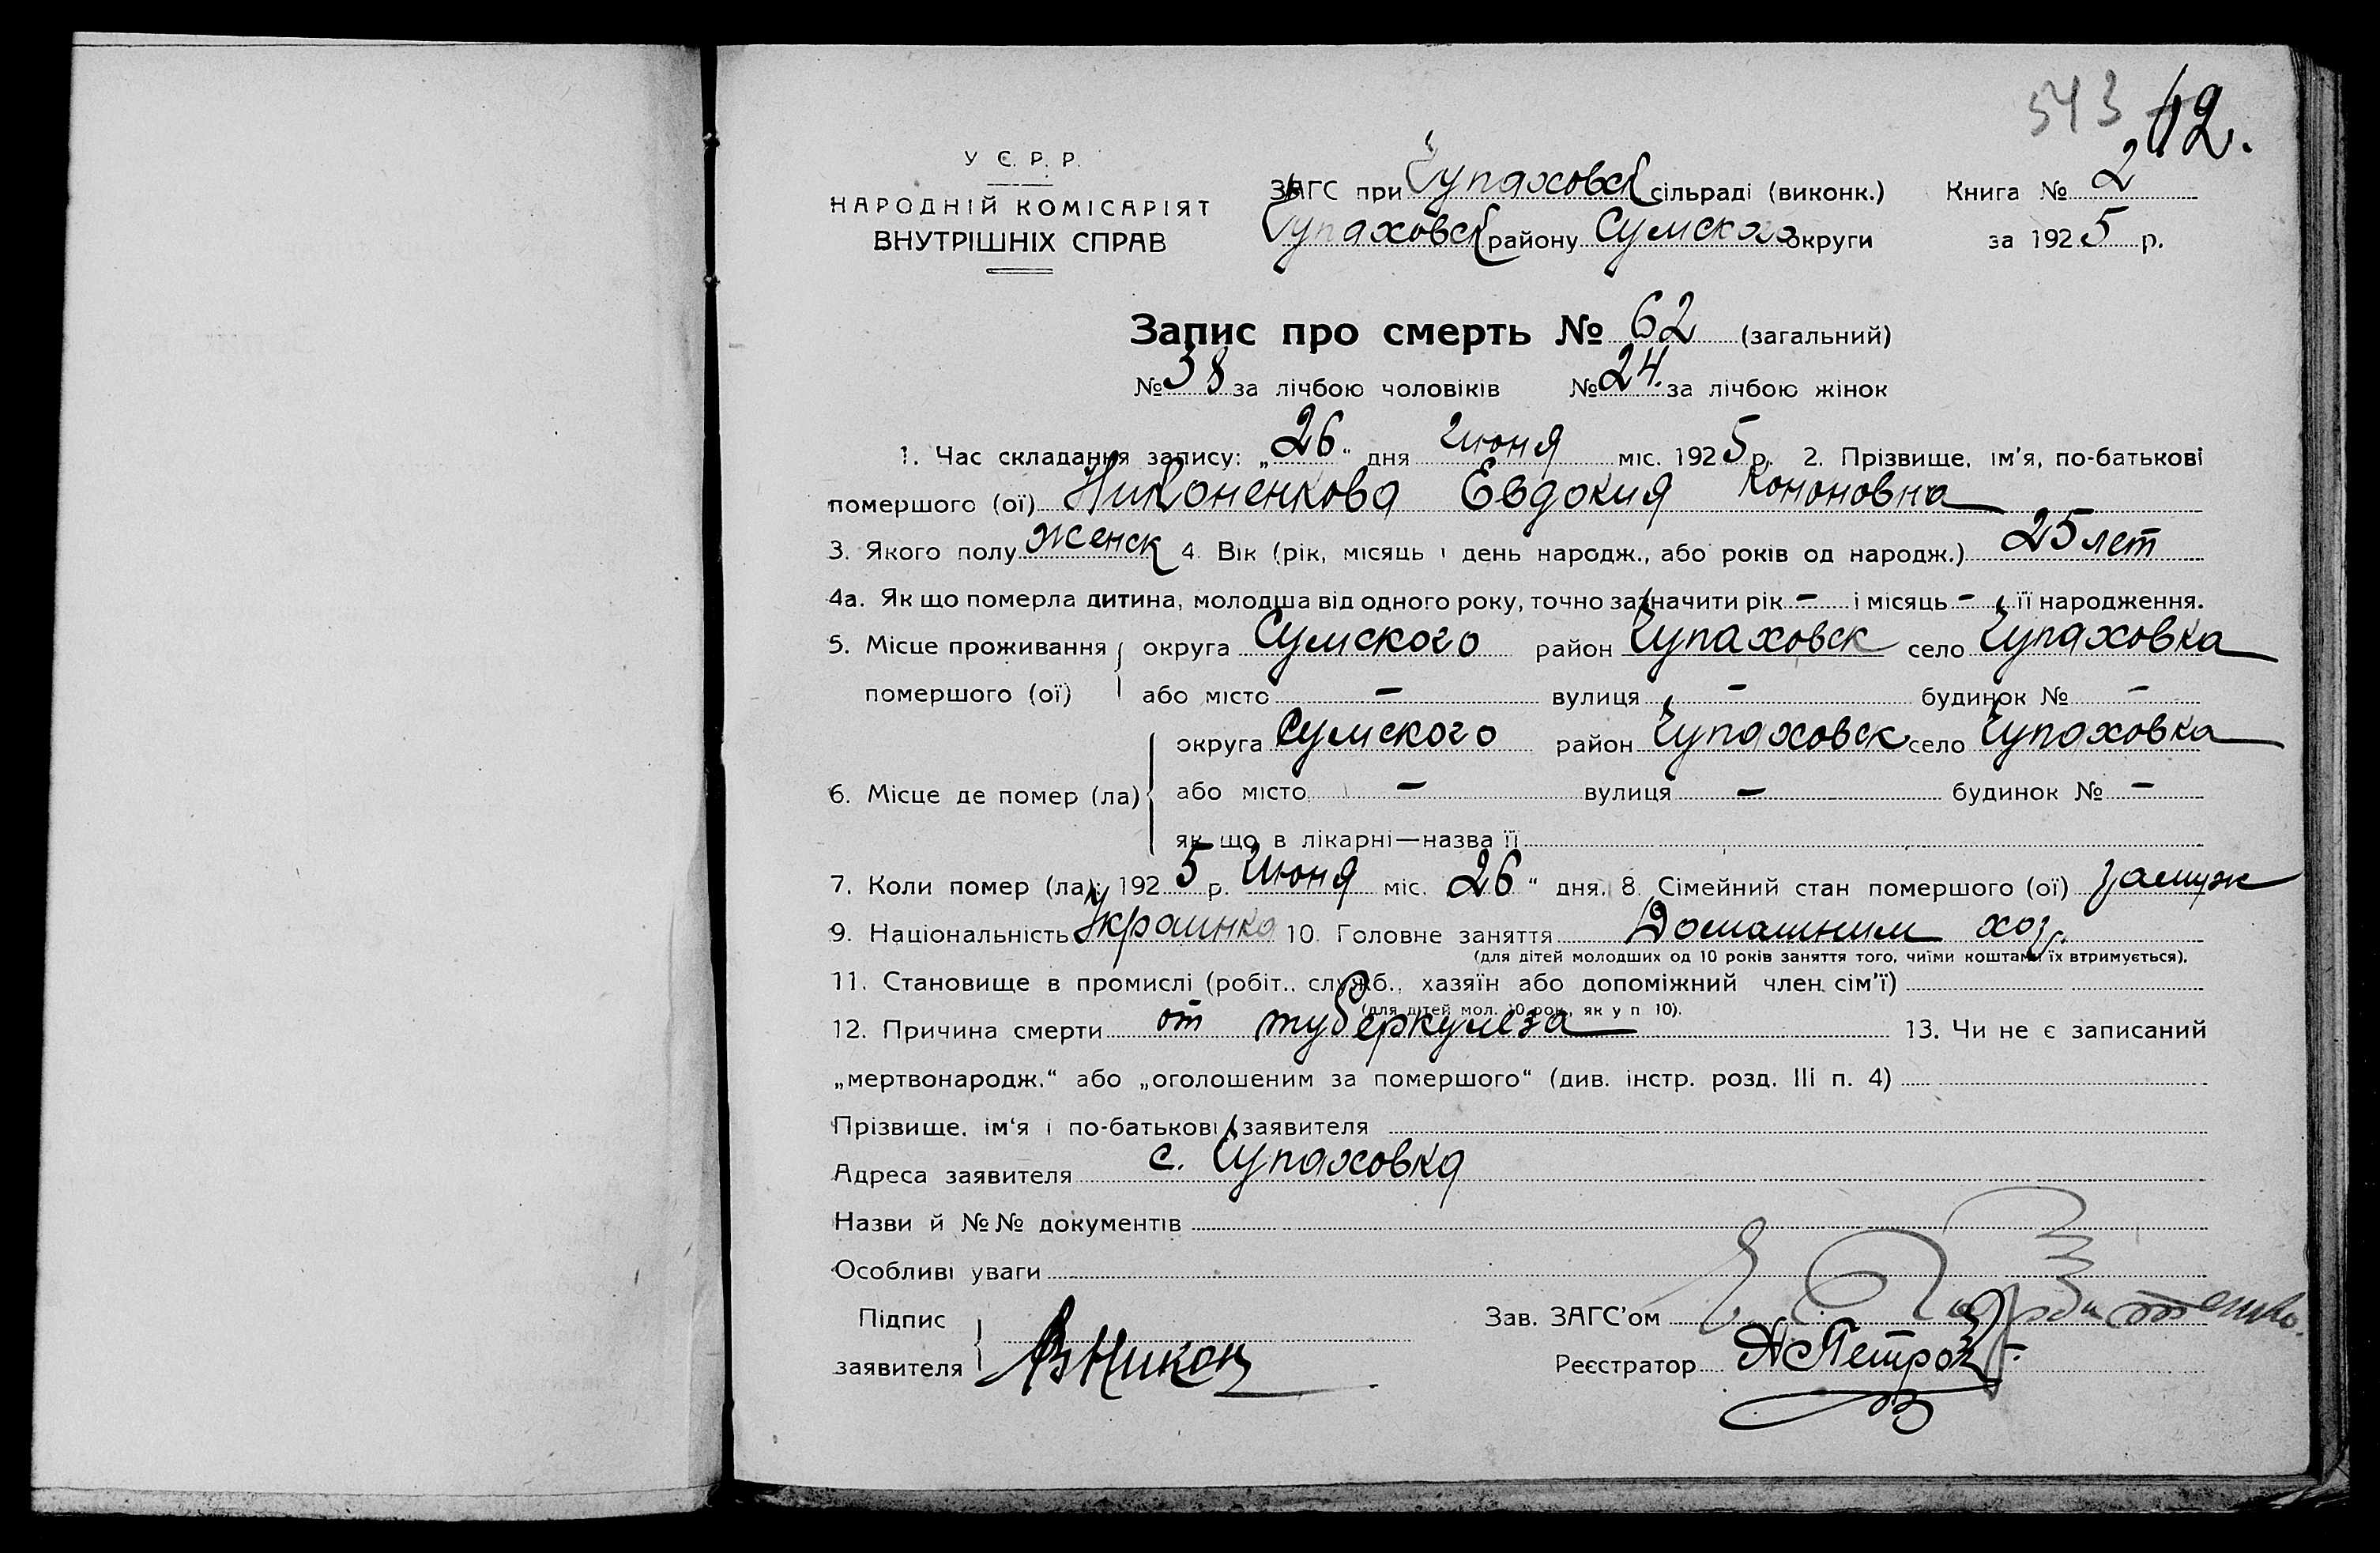 543 62.
У С. Р. Р.
НАРОДНІЙ КОМІСАРІЯТ
ВНУТРІШНІХ СПРАВ
ЗАГС при Чупаховск сільраді (виконк.) Книга № 2
Чупаховск району Сумского округи за 1925 р.
Запис про смерть № 62 (загальний)
№ 38 за лічбою чоловіків № 24. за лічбою жінок
1. Час складання запису: „26“ дня Июня міс. 1925 р. 2. Прізвище, ім'я, по-батькові
помершого (ої) Никоненкова Евдокия Кононовна
3. Якого полу женск 4. Вік (рік, місяць і день народж., або років од народж.) 25 лет
4а. Як що померла дитина, молодша від одного року, точно зазначити рік – і місяць – її народження.
5. Місце проживання округа Сумского район Чупаховск село Чупаховка
помершого (ої) або місто – вулиця – будинок № –
округа Сумского район Чупаховск село Чупаховка
6. Місце де помер (ла) або місто – вулиця – будинок № –
як що в лікарні—назва її
7. Коли помер (ла): 1925 р. Июня міс. 26 “ дня. 8. Сімейний стан помершого (ої) замуж
9. Національність Украинка 10. Головне заняття Домашним хоз.
(для дітей молодших од 10 років заняття того, чиїми коштами їх втримується).
11. Становище в промислі (робіт., служб., хазяїн або допоміжний член сім'ї)
(для дітей мол. 10 рок., як у п 10).
12. Причина смерти от туберкулеза 13. Чи не є записаний
„мертвонародж.“ або „оголошеним за помершого“ (див. інстр. розд. III п. 4)
Прізвище, ім'я і по-батькові заявителя
Адреса заявителя с. Чупаховка
Назви й №№ документів
Особливі уваги
Підпис Зав. ЗАГС'ом
заявителя В Никон Реєстратор А Петров